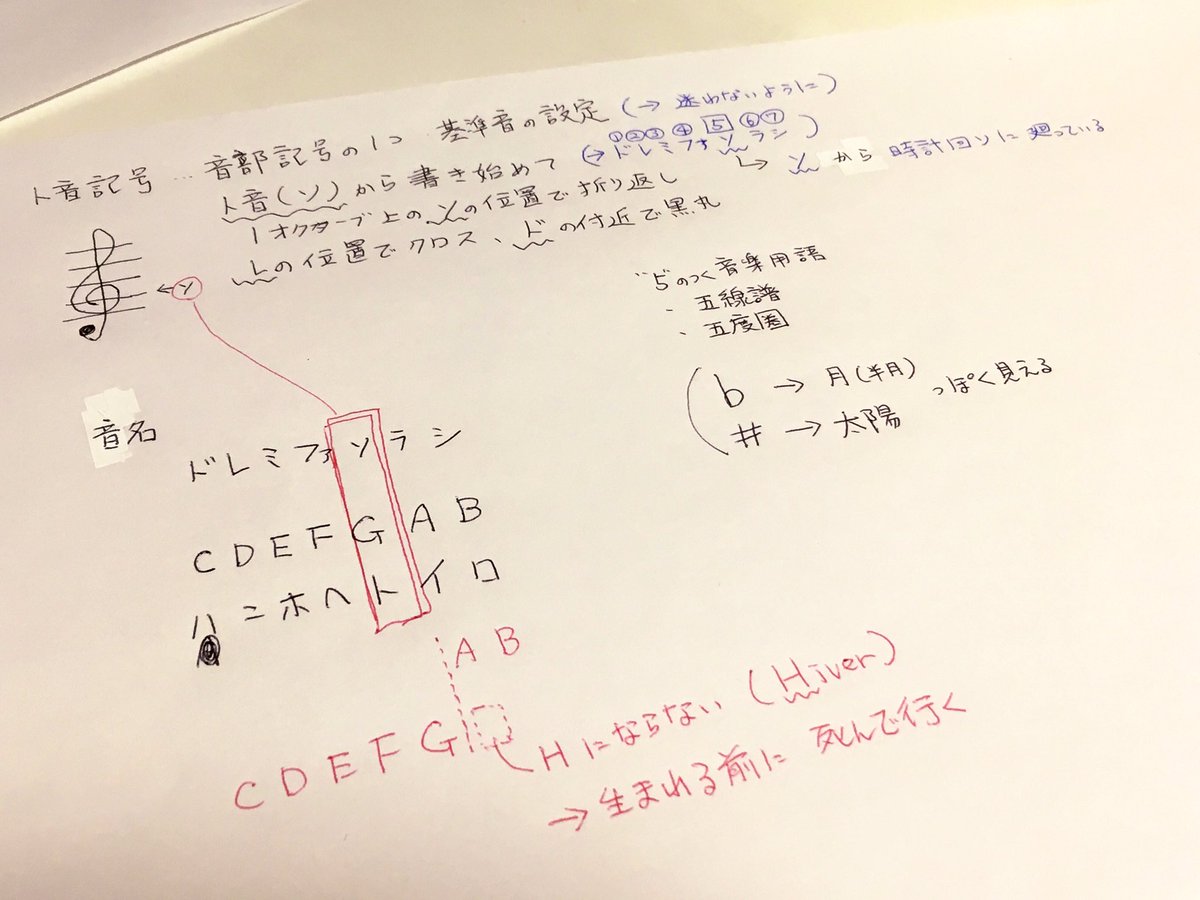 ト音記号 … 音部記号の1つ 基準音の設定 (→ 迷わないように)
ト音(ソ)から書き始めて
①②③④5⑥⑦
(→ドレミファソラシ)
↳ ソから時計回りに廻っている
1オクターブ上のソの位置で折り返し
レの位置でクロス、ドの付近で黒丸
← ソ
"5"のつく音楽用語
・五線譜
・五度圏
b → 月(半月)
# → 太陽
っぽく見える
音名
ドレミファソラシ
CDEFGAB
ハニホヘトイロ
AB
CDEFG
Hにならない (Hiver)
→生まれる前に 死んで行く